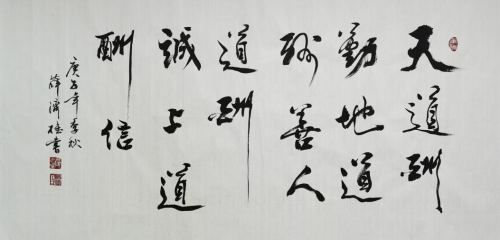 天道酬
勤地道
酬善人
道酬
誠商道
酬信
庚子年季秋
薛書